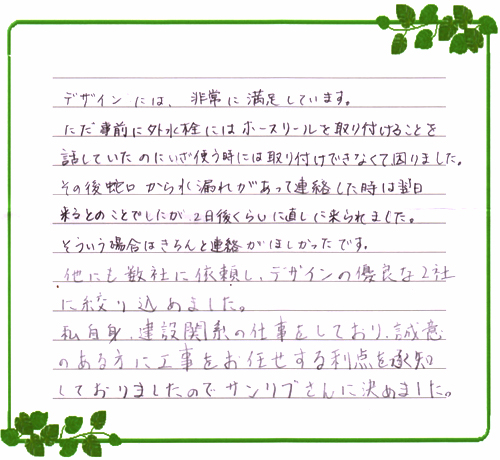 デザインには、非常に満足しています。
ただ事前に外水栓にはホースリールを取り付けることを
話していたのにいざ使う時には取り付けできなくて困りました。
その後蛇口から水漏れがあって連絡した時は翌日
来るとのことでしたが、2日後くらいに直しに来られました。
そういう場合はきちんと連絡がほしかったです。
他にも数社に依頼し、デザインの優良な2社
に絞り込めました。
私自身、建設関係の仕事をしており、誠意
のある方に工事をお任せする利点を承知
しておりましたのでサンリブさんに決めました。